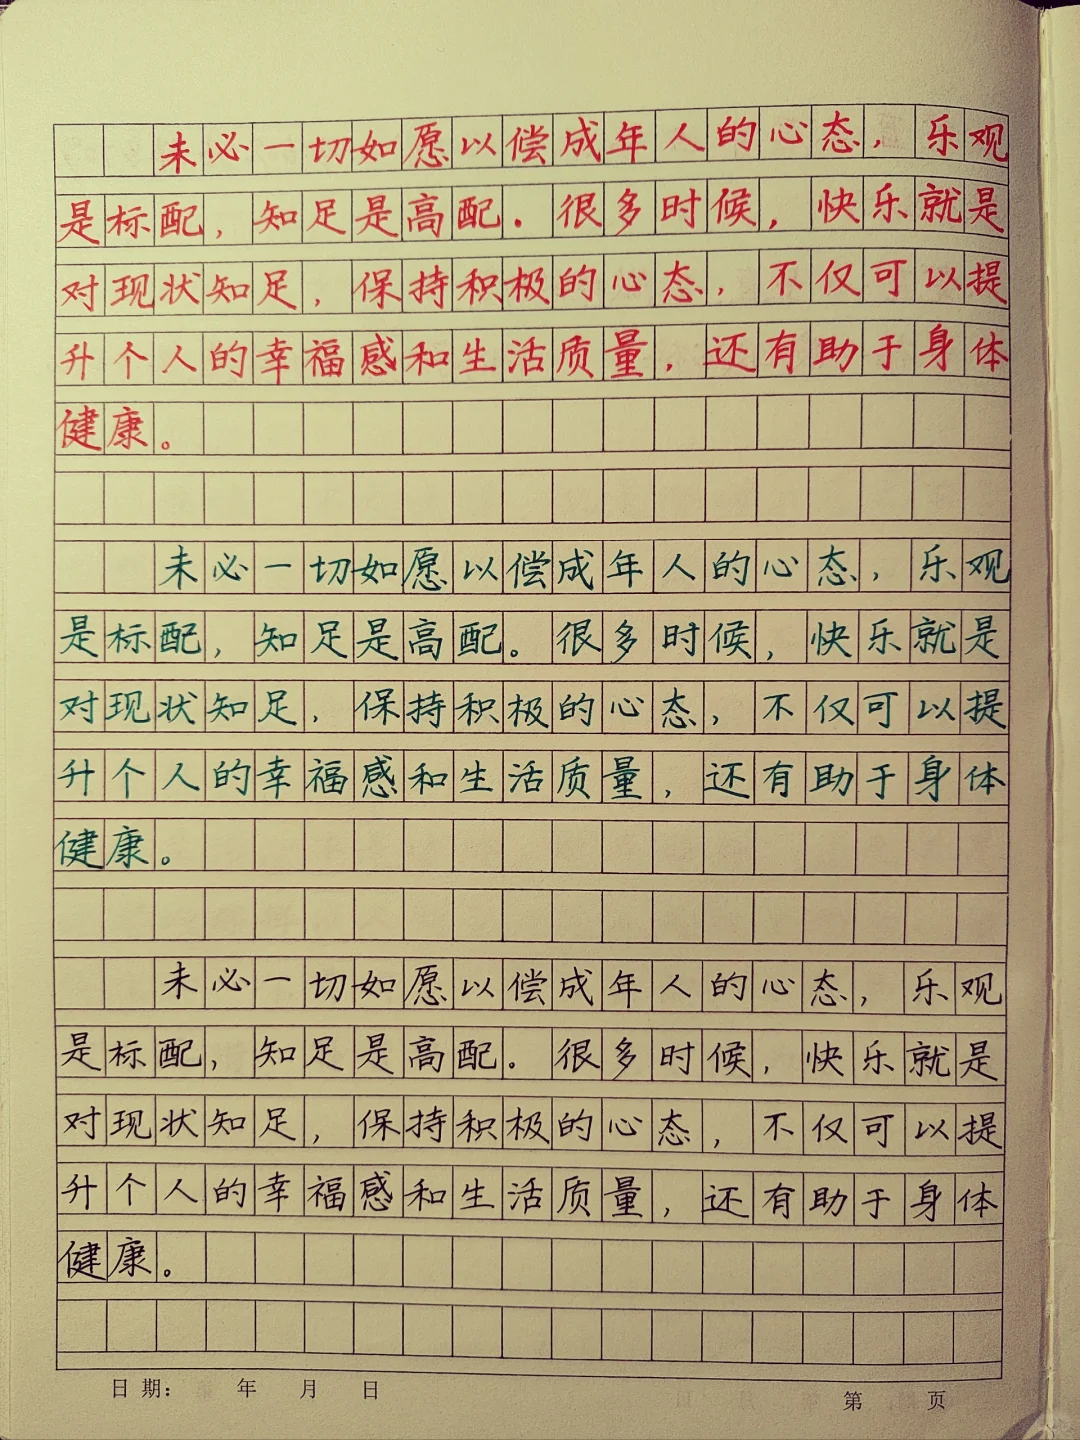 未必一切如愿以偿成年人的心态，乐观
是标配，知足是高配。很多时候，快乐就是
对现状知足，保持积极的心态，不仅可以提
升个人的幸福感和生活质量，还有助于身体
健康。
未必一切如愿以偿成年人的心态，乐观
是标配，知足是高配。很多时候，快乐就是
对现状知足，保持积极的心态，不仅可以提
升个人的幸福感和生活质量，还有助于身体
健康。
未必一切如愿以偿成年人的心态，乐观
是标配，知足是高配。很多时候，快乐就是
对现状知足，保持积极的心态，不仅可以提
升个人的幸福感和生活质量，还有助于身体
健康。
日期： 年 月 日 第 页